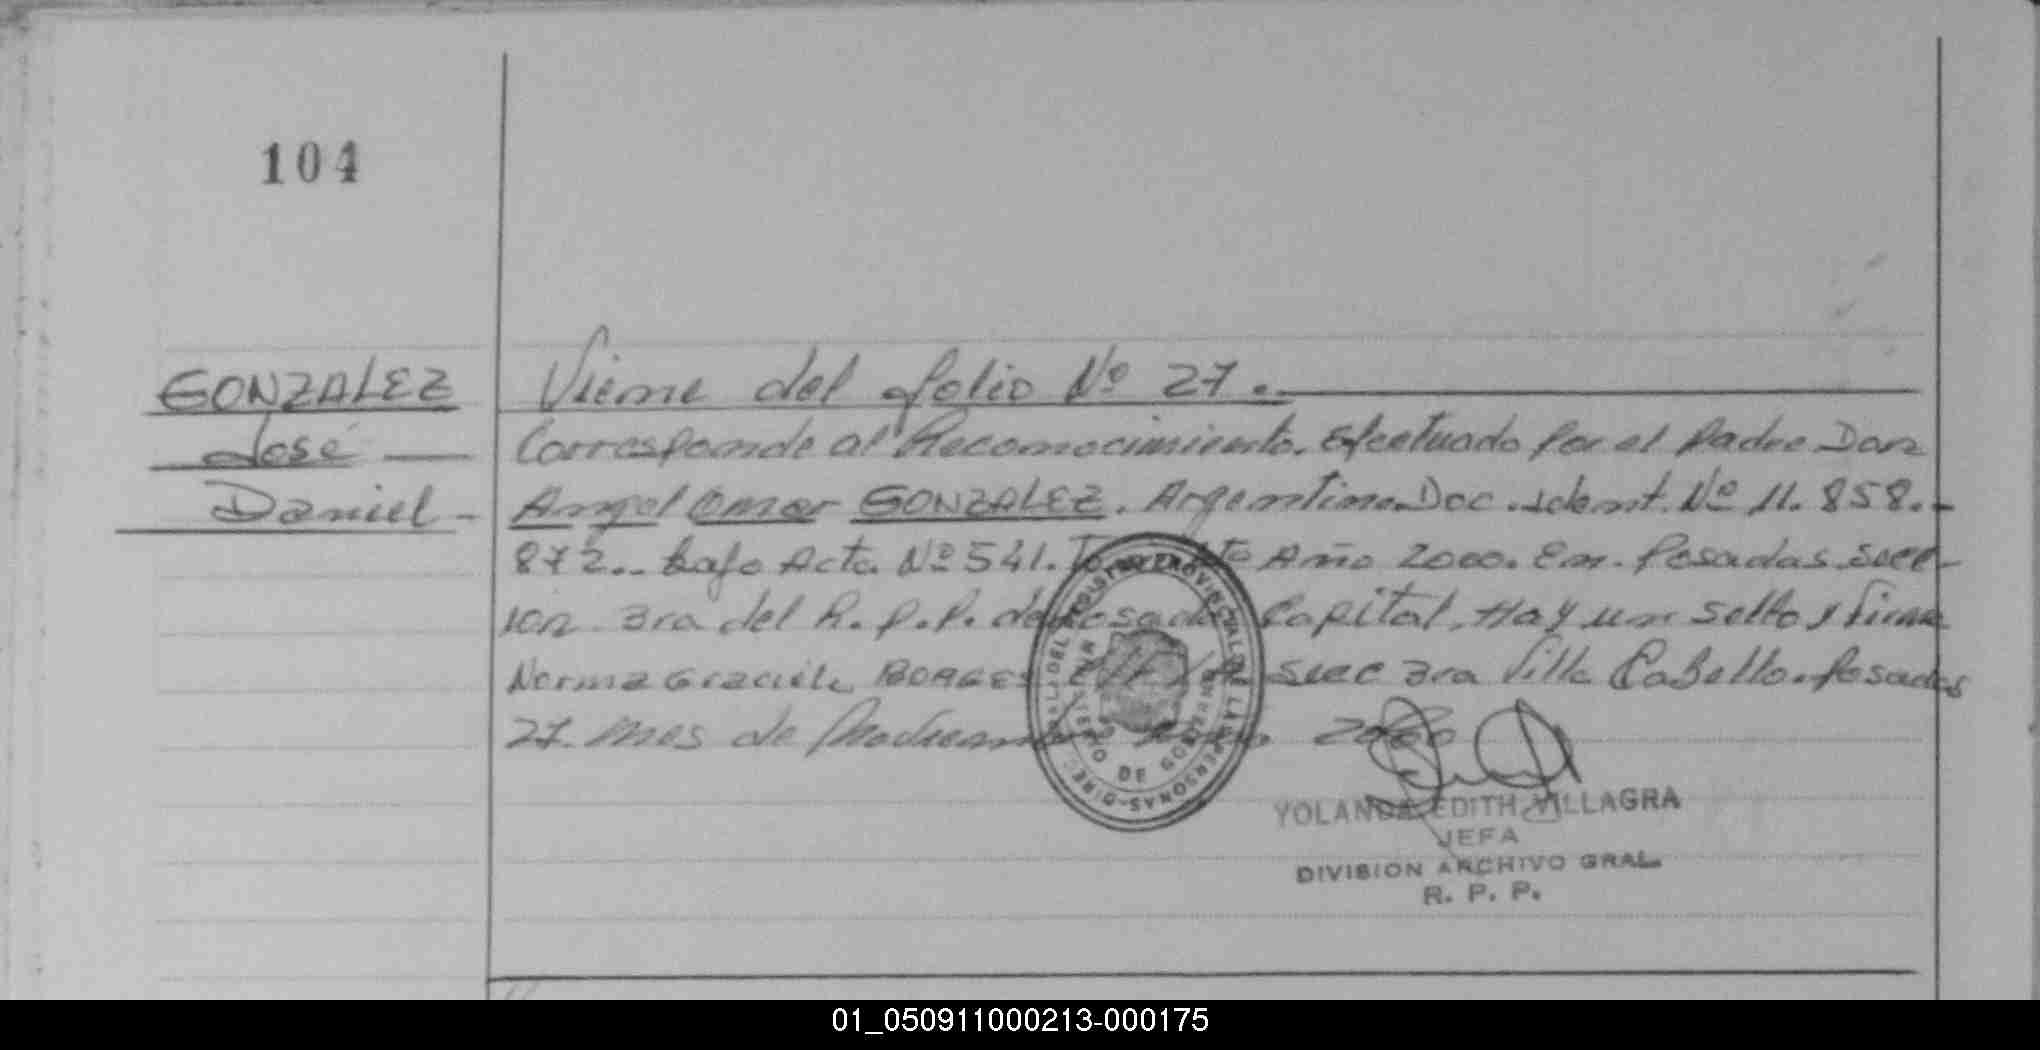 104
GONZALEZ
José
Daniel -
Viene del folio Nº 27.
Corresponde al Reconocimiento. Efectuado por el Padre Don
Angel Omar GONZALEZ. Argentino Doc. Ident. Nº 11.858.-
872.. bajo Acta Nº 541. Año 2000. En. Posadas Secc-
ion 3ra del R.P.P. de Posadas Capital. Hay un sello y firma
Norma Graciela BORGES Secc 3ra Villa Cabello. Posadas
27. Mes de Noviembre 2000
DIREC GRAL DEL REGISTRO PROVINCIAL DE LAS PERSONAS
MINISTERIO DE GOBIERNO
YOLANDA EDITH VILLAGRA
JEFA
DIVISION ARCHIVO GRAL.
R. P. P.
01_050911000213-000175